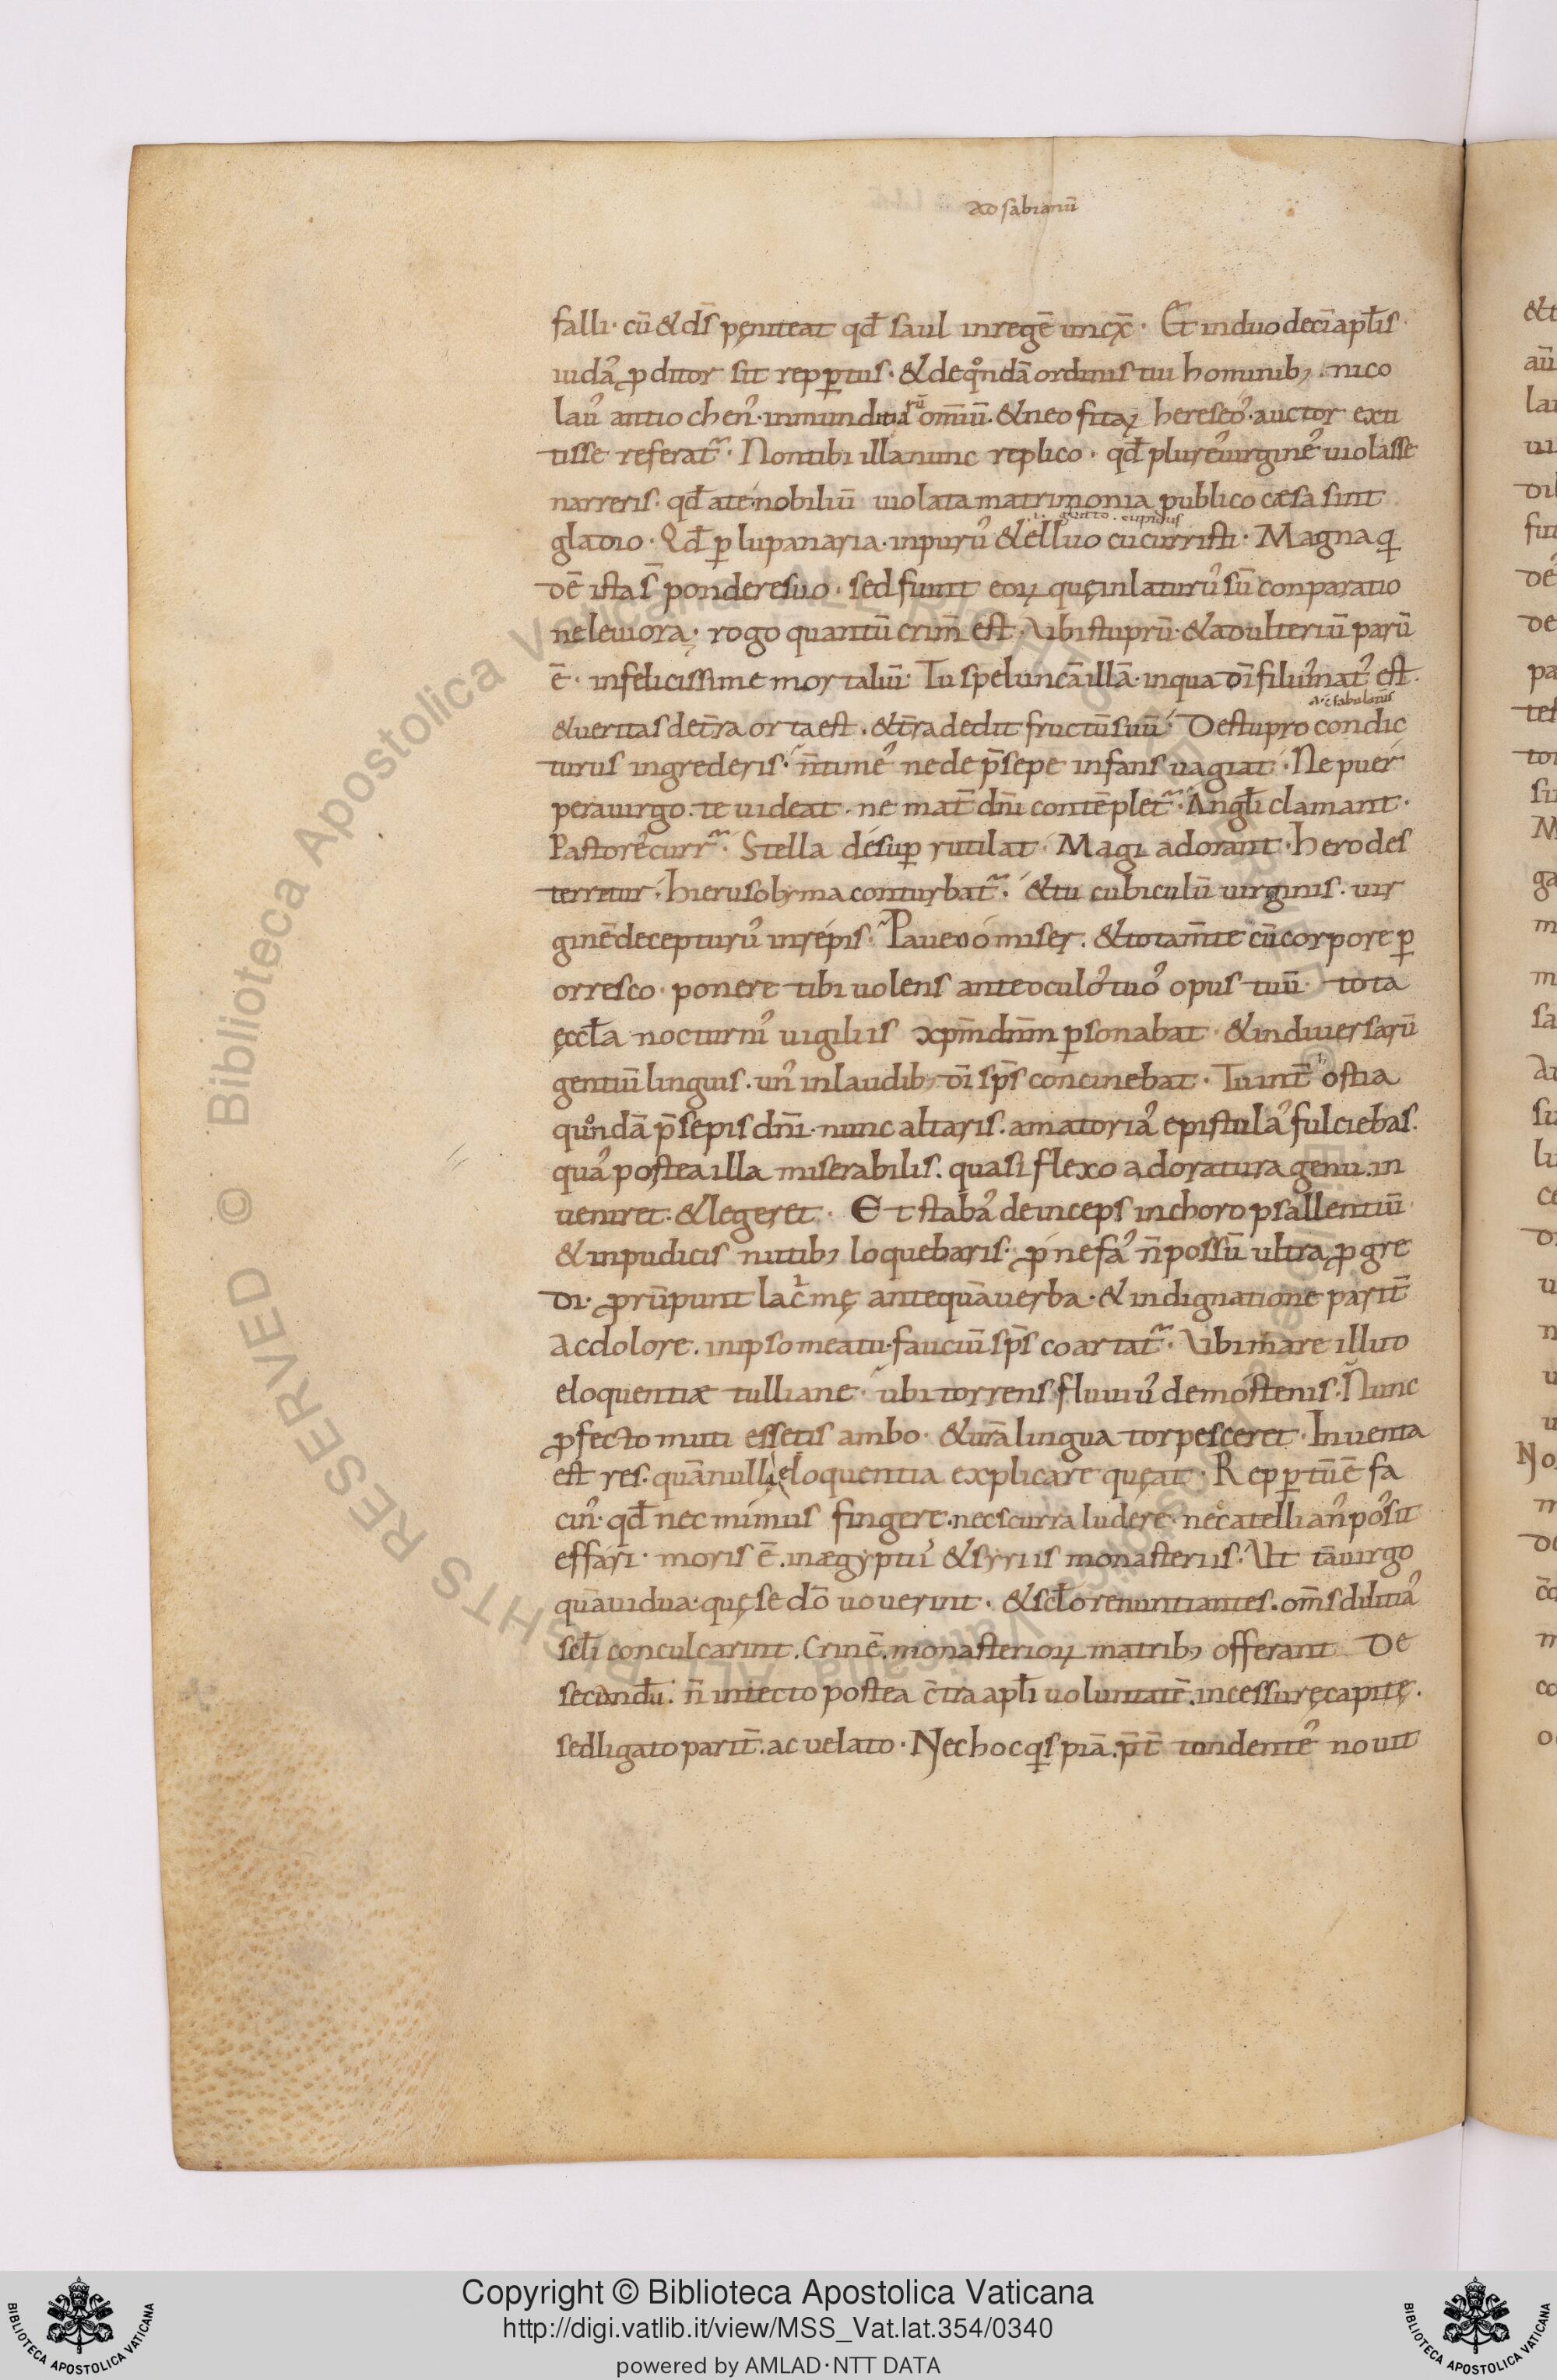 ad sabianū
falli· cū & dſ̄ pęniteat qd̄ saul in regē uncx̄· Et in duodeci apl̄is
iudaʼ ꝓditor sit reppertus· & de qͦndā ordinis tui hominib; · nico
lauʼ antiochenʼ· inmunditiarū omīu· & neofitaꝝ hereseoʼ· auctor exti
tisse referat᷑· Non tibi illa nunc replico· qd̄ plureʼ uirgineʼ uiolasse
narreris· qd̄ a te nobiliū uiolata matrimonia publico cæsa sint
·i· glutto· cupidus
gladio· Qd̄ ꝑ lupanaria· inpuruʼ & elluo cucurristi· Magna qi
dē ista s̄ pondere suo· sed fiunt eoꝝ quę inlaturuʼ sū conparatio
ne leuiora· rogo quantū crim̄ est· Vbi stuprū & adulteriū parū
ē· infelicissime mortaliū· Tu speluncā illā· in qua dī filiuʼ natʼ est·
& ueritas de tr̄a orta est· & tr̄a dedit fructū suū· De stupro condic
turus ingrederis· n̄ timeʼ ne de p̄sepe infans uagiat· Ne puer
pera uirgo· te uideat· ne mat̄ dn̄i contēplet᷑· Angl̄i clamant·
Pastoreʼ curr᷑· Stella desuꝑ rutilat· Magi adorant· herodes
terretur· hierusolyma conturbat᷑· & tu cubiculū uirginis· uir
ginē decepturuʼ inrepis· Paueo ó miser· & tota m̄te cū corpore ꝑ
orresco· ponere tibi uolens ante oculoʼ tuoʼ opus tuū· tota
ęccl̄a nocturniʼ uigiliis xpm̄ dnm̄ ꝑsonabat· & in diuersarū
gentiū linguis· unʼ in laudib; dī sp̄s concinebat· Tu int̄ ostia
quͦndā p̄sepis dn̄i· nunc altaris· amatoriaʼ epistulaʼ fulciebas·
quaʼ postea illa miserabilis· quasi flexo adoratura genu· in
ueniret· & legeret· Et stabaʼ deinceps in choro psallentiū
& inpudicis nutib; loquebaris· ꝓ nefaʼ n̄ possū ultra ꝓgre
di· ꝓrūpunt lac̄mę antequā uerba· & indignatione parit̄
ac dolore· in ipso meatu· fauciū sp̄s coartat᷑· Vbi mare illud
eloquentiæ tulliane· ubi torrens fluuiuʼ demostenis· Nunc
ꝓfecto muti essetis ambo· & ur̄a lingua torpesceret· Inuenta
est res· quā nulli eloquentia explicare quęat· Reppertū ē fa
cinʼ· qd̄ nec mimus fingere· nec scurra ludere· nec atellianʼ poʼsit
effari· moris ē· in ægyptiiʼ & syriis monasteriis· Vt tā uirgo
quā uidua· quę se dō uouerint· & scl̄o renuntiantes· oms̄ diliciaʼ
scl̄i conculcarint· Crinē· monasterioꝝ matrib; offerant De
secandū· n̄ intecto postea c̄tra apl̄i uoluntatē· incessurę capitę·
sed ligato parit̄· ac uelato· Nec hoc qispiā· p̄t̄ tondenteʼ nouit
Copyright © Biblioteca Apostolica Vaticana
http://digi.vatlib.it/view/MSS_Vat.lat.354/0340
powered by AMLAD·NTT DATA